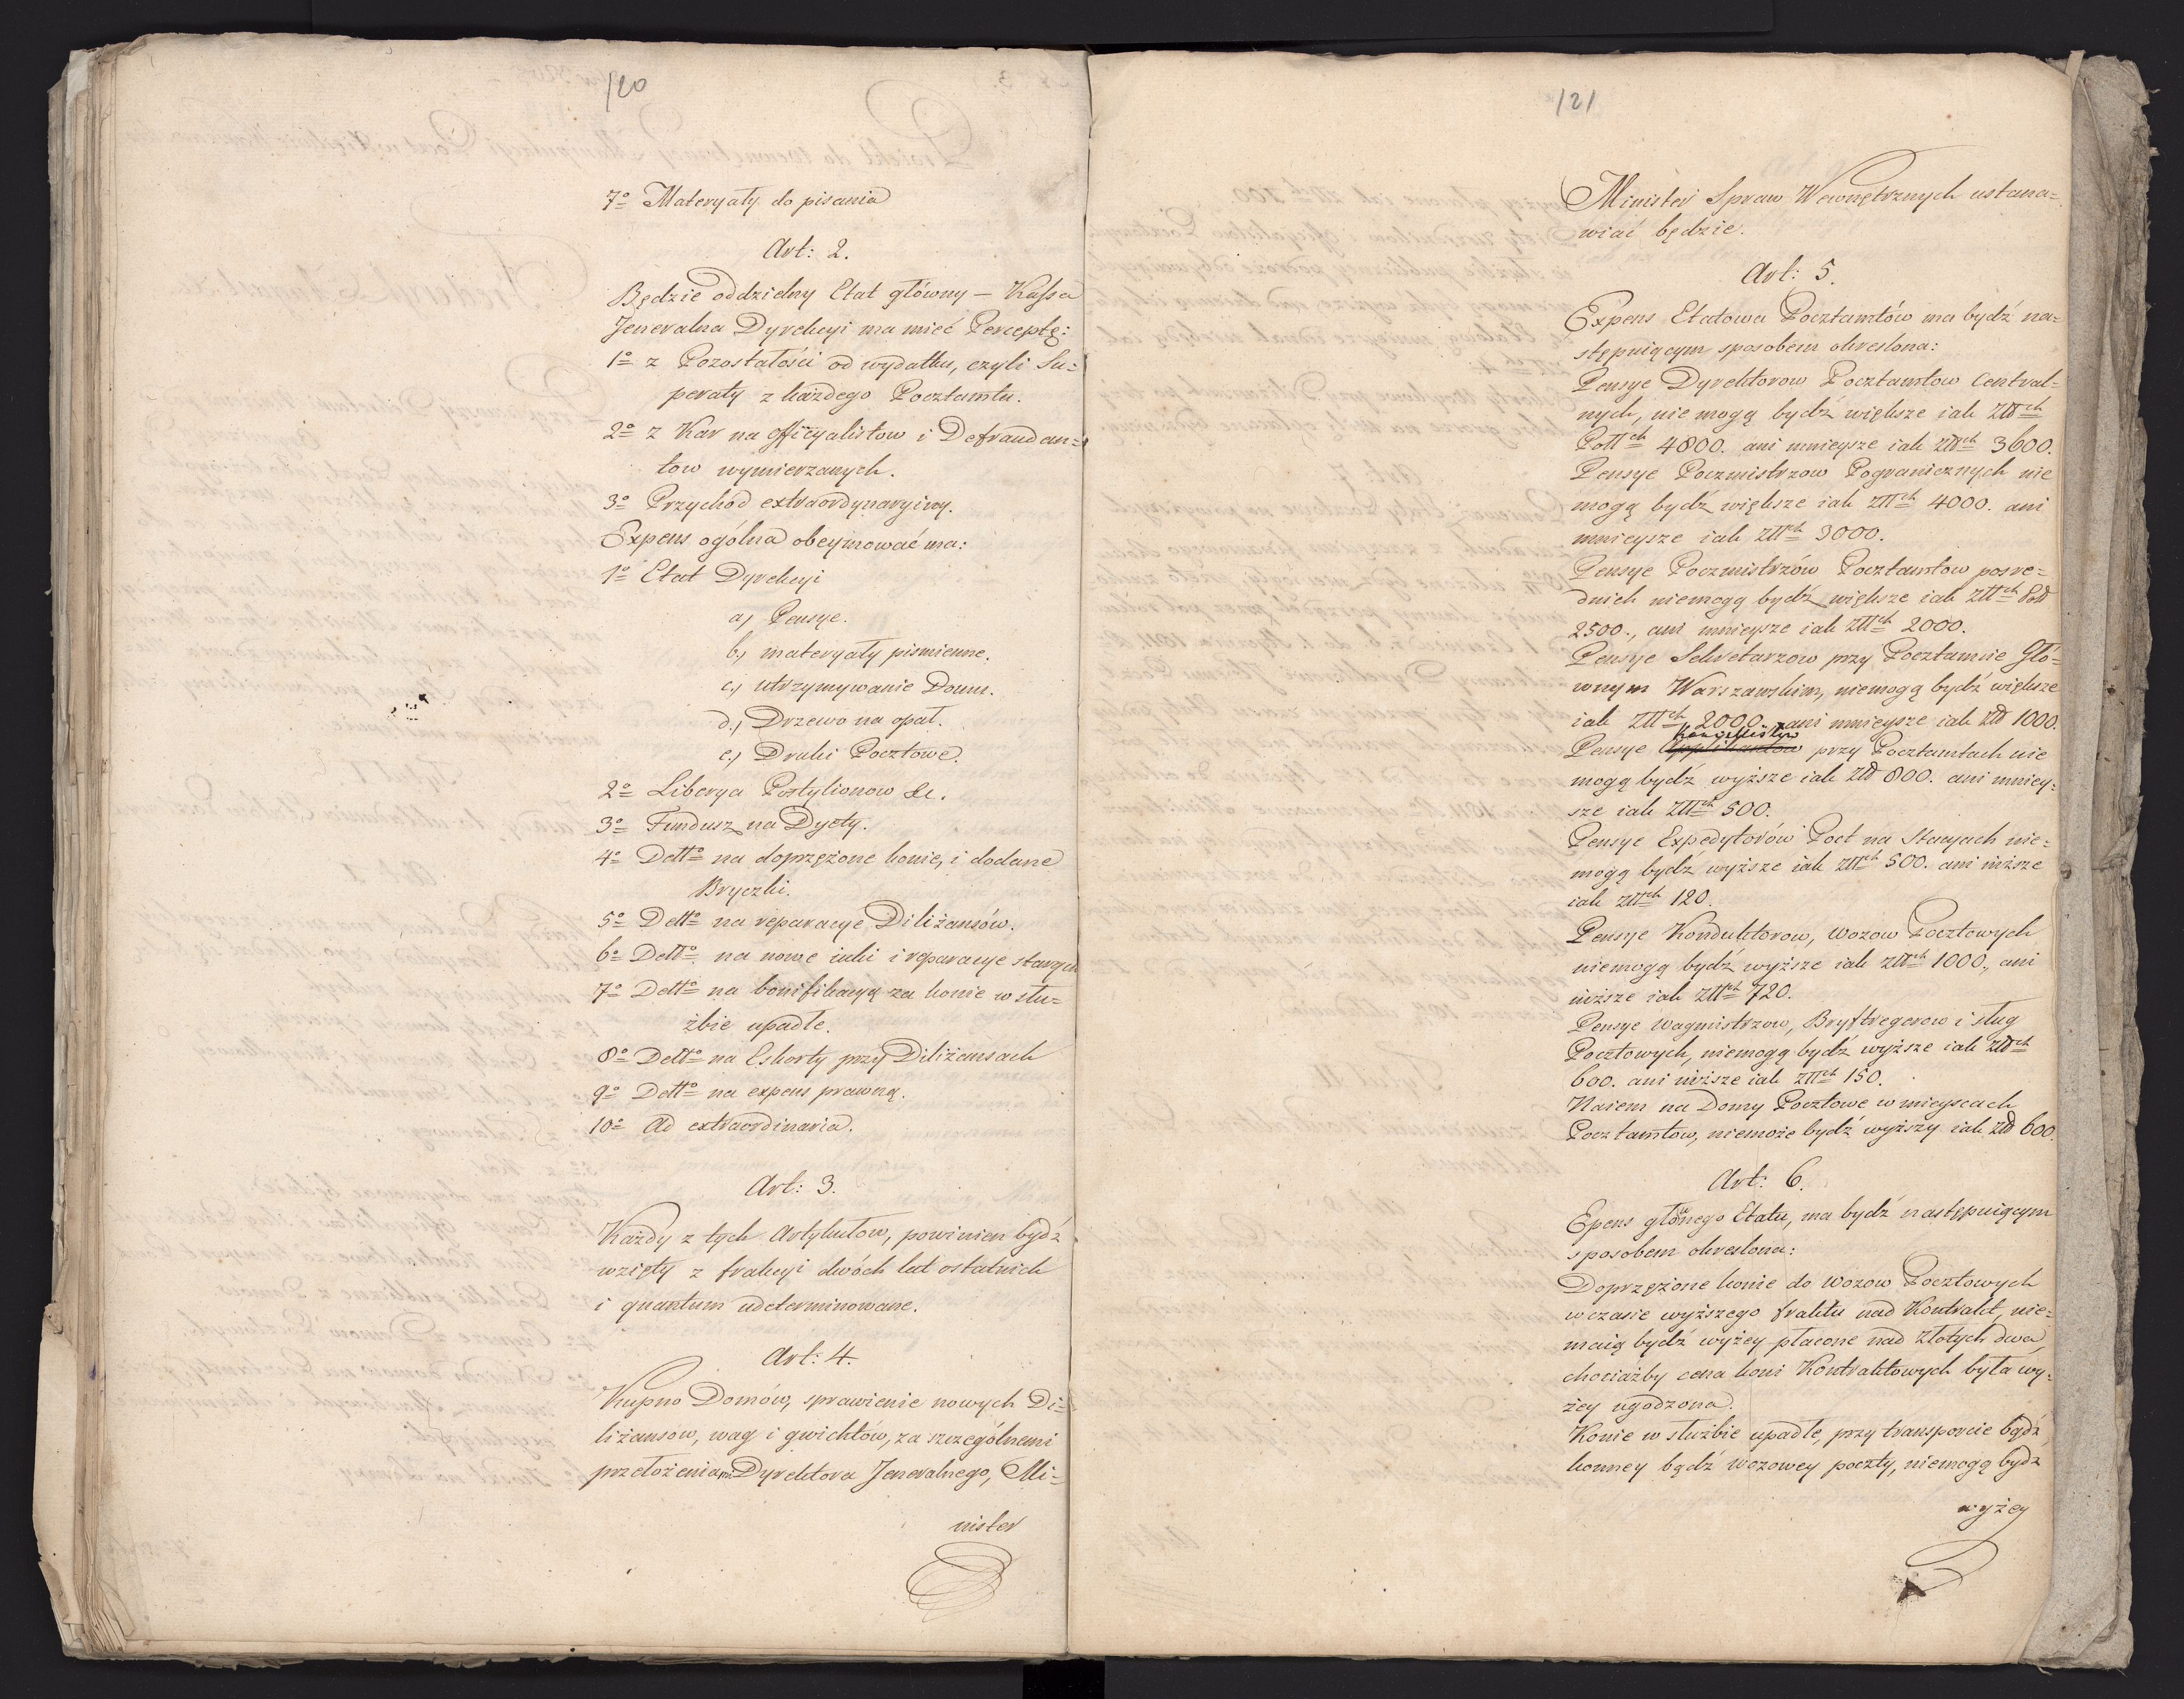 120
7º Materyały do pisania
Art: 2.
Będzie oddzielny Etat główny — Kassa
Jeneralna Dyrekcyi ma mieć Perceptę:
1º z Pozostałości od wydatku, czyli Su=
peraty z każdego Pocztamtu.
2º z Kar na Officyalistow i Defraudan=
tow wymierzanych.
3º Przychód extraordynaryiny.
Expens ogólna obeymować ma:
1º Etat Dyrekcyi
a) Pensye.
b) materyały pismienne.
c) utrzymywanie Domu.
d) Drzewo na opał.
e) Druki Pocztowe.
2º Liberya Postylionow &c.
3º Fundusz na Dyety.
4º Dettº na doprzężone konie, i dodane
Bryczki.
5º Dettº na reparacye Diliżansów.
6º Dettº na nowe iuki i reparacye starych
7º Dettº na bonifikacyą za konie w słu=
żbie upadłe.
8º Dettº na Eskorty przy Diliżansach
9º Dettº na expens prawną.
10º Ad extraordinaria.
Art: 3.
Każdy z tych Artykułow, powinien bydź
wzięty z frakcyi dwóch lat ostatnich
i quantum udeterminowane.
Art: 4.
Kupno Domów, sprawienie nowych Di=
liżansow, wag i gwichtów, za szczególnemi
przełożeniam Dyrektora Jeneralnego, Mi=
nister
121
Minister Spraw Wewnętrznych ustana=
wiać będzie.
Art: 5.
Expens Etatowa Pocztamtów ma bydź na=
stępuiącym sposobem okreslona:
Pensye Dyrektorow Pocztamtow Central=
nych, nie mogą bydź większe iak Złłch
Pollch 4800. ani mnieysze iak złłch 3600.
Pensye Poczmistrzow Pogranicznych nie
mogą bydź większe iak Złłch 4000. ani
mnieysze iak Złłch 3000.
Pensye Poczmistrzów Pocztamtow posre=
dnich niemogą bydź większe iak Złłch Pol
2500., ani mnieysze iak Złłch 2000.
Pensye Sekretarzow przy Pocztamcie Głó=
wnym Warszawskim, niemogą bydź większe
iak Złłch 2000. ani mnieysze iak złł 1000.
Kancellistow
Pensye Applikantow przy Pocztamtach nie
mogą bydź wyższe iak złł 800. ani mniey=
sze iak Złłch 500.
Pensye Expedytorów Poct na Stacyach nie=
mogą bydź wyższe iak złłch 500. ani niższe
iak złłch 120.
Pensye Konduktorow, wozow Pocztowych
niemogą bydź wyższe iak złłch 1000., ani
niższe iak Złłch 720.
Pensye Wagmistrzow, Bryftregerow i sług
Pocztowych, niemogą bydź wyższe iak złłch
600. ani niższe iak Złłch 150.
Naiem na Domy Pocztowe w mieyscach
Pocztamtow, niemoże bydź wyższy iak złł 600.
Art: 6.
Epens głównego Etatu, ma bydź następuiącym
sposobem okreslona:
Doprzężone konie do wozow Pocztowych
w czasie wyższego fraktu nad Kontrakt, nie=
maią bydź wyżey płacone nad złotych dwa,
chociażby cena koni Kontraktowych była wy=
żey ugodzona.
Konie w służbie upadłe, przy transporcie bądź
konney bądź wozowey poczty, niemogą bydź
wyżey